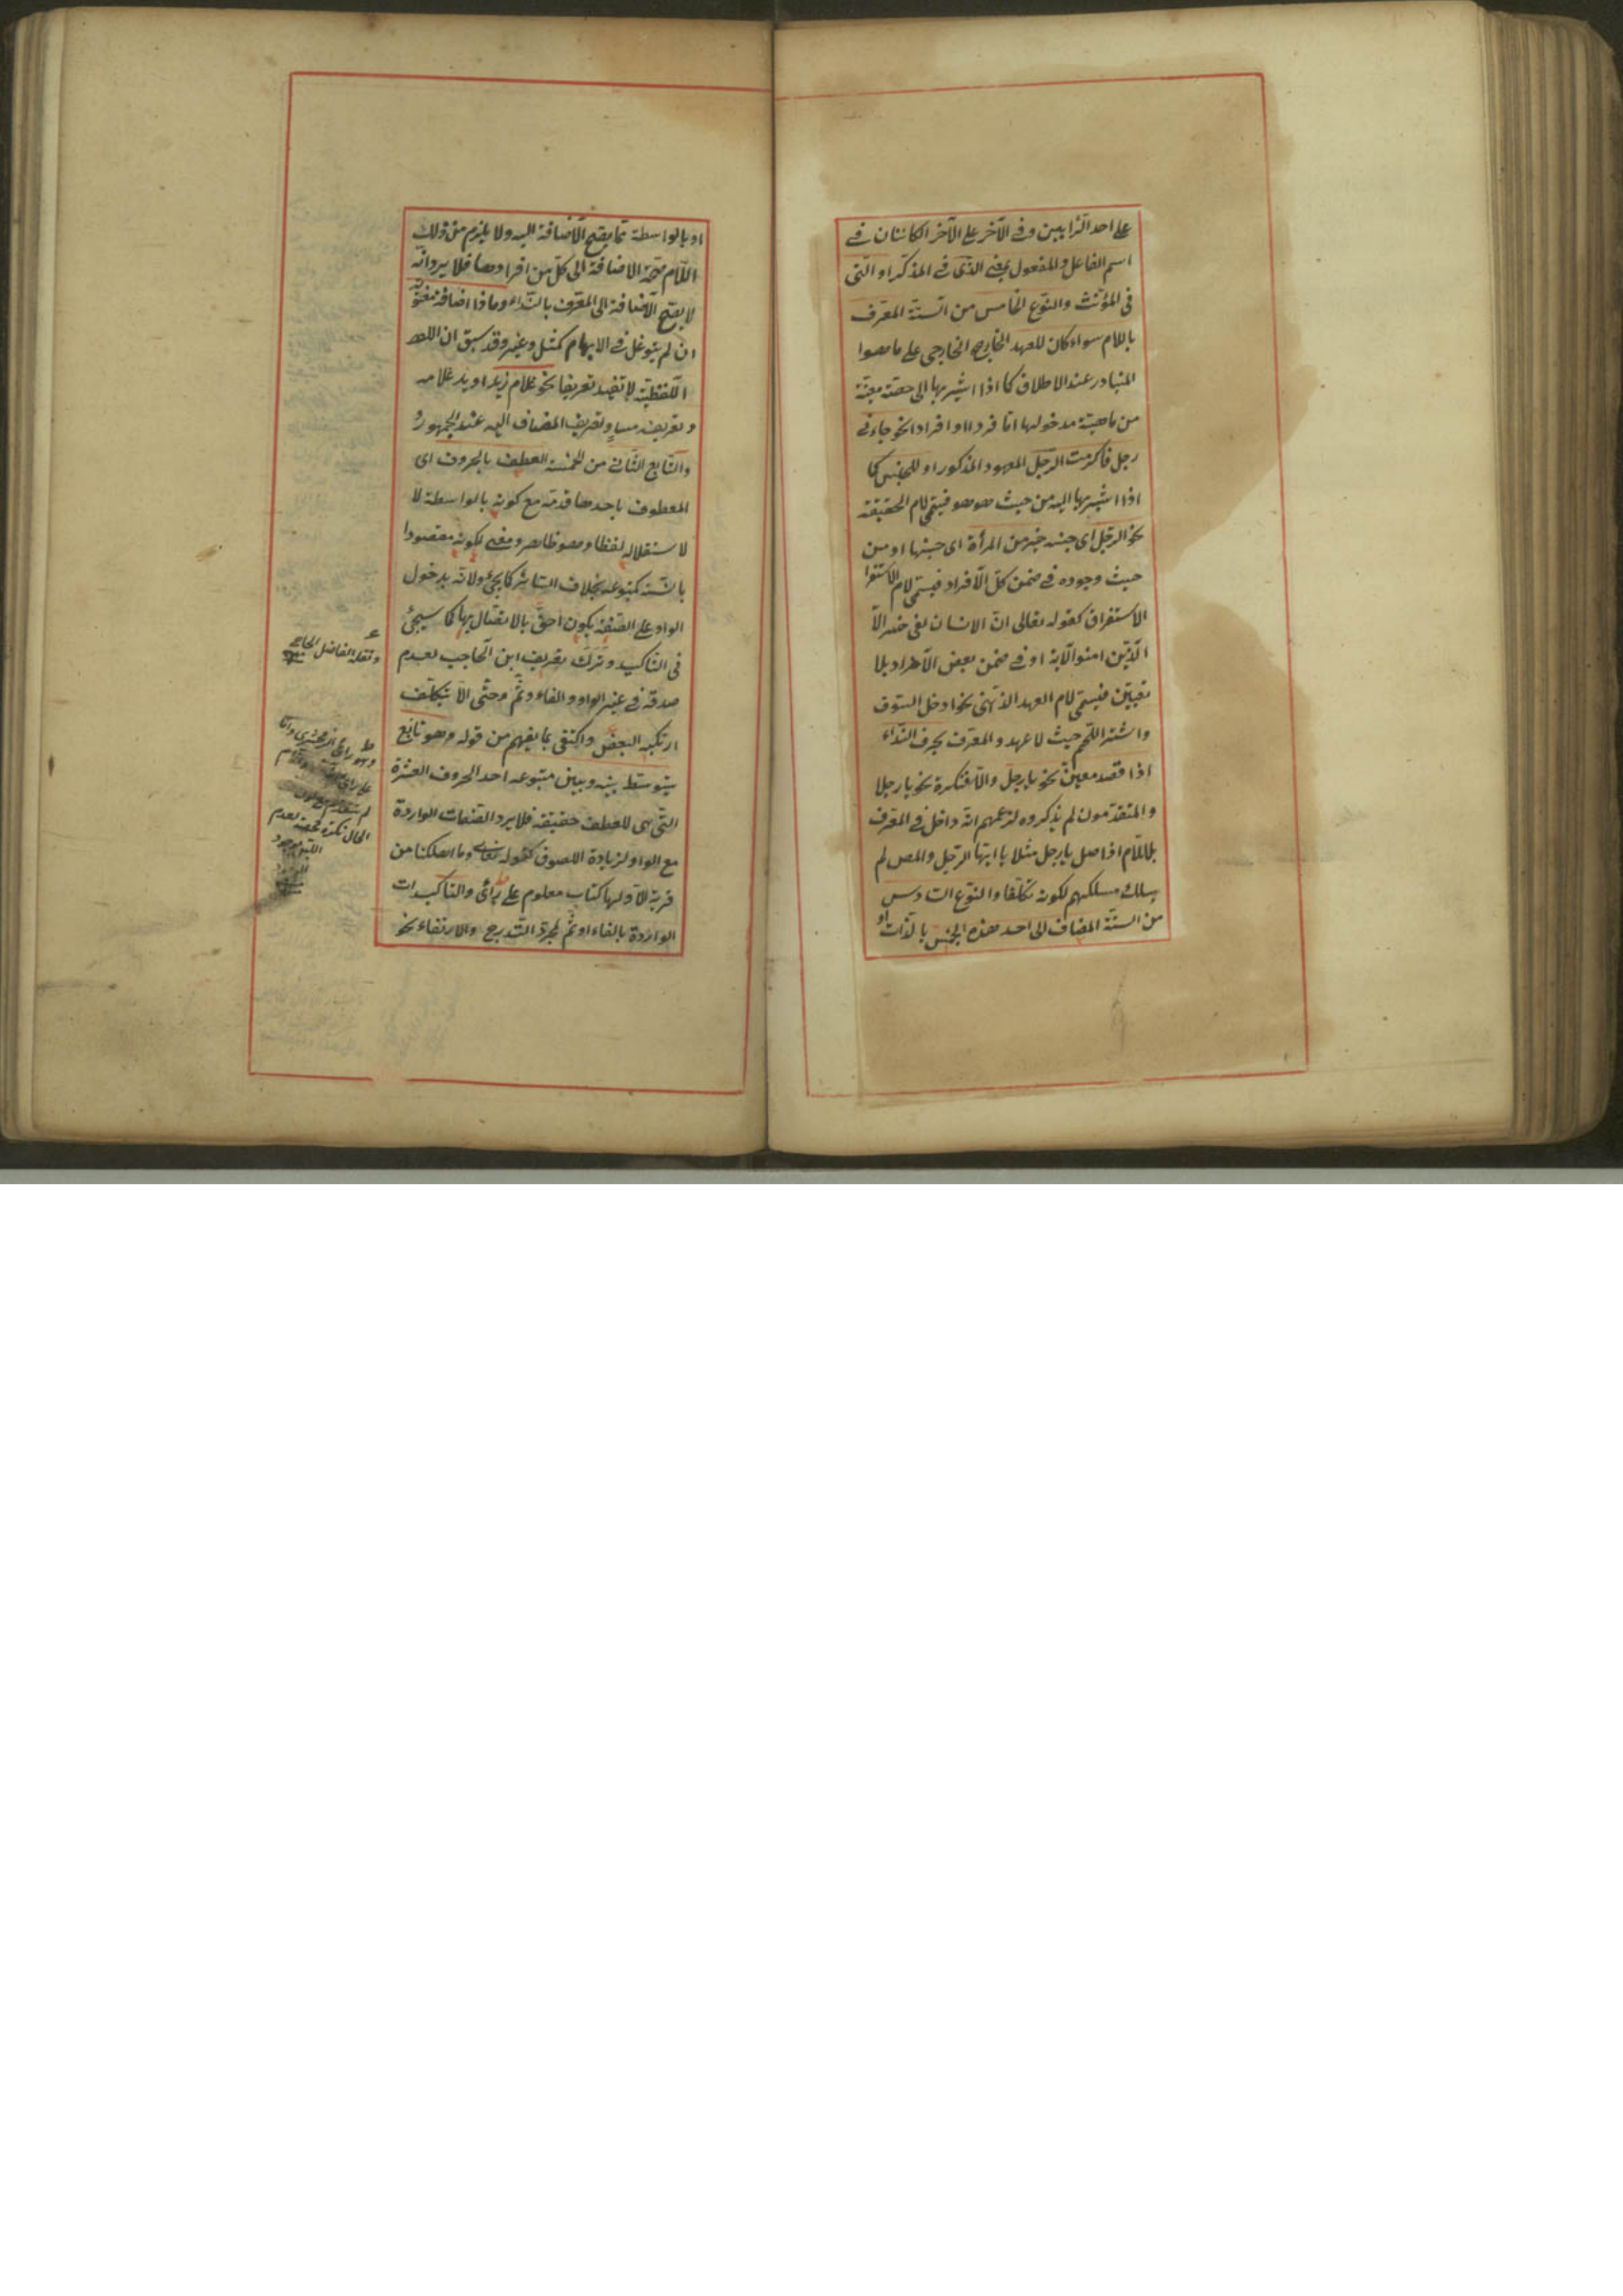 على احد الرأيين وفى الآخر على الآخر الكائنان فى
اسم الفاعل والمفعول بمعنى الذى فى المذكر او التى
فى المؤنث والنوع الخامس من الستة المعرف
باللام سواء كان للعهد الخارجى على ما هوا
المتبادر عند الاطلاق كما اذا اشير بها الى حصة معينة
من ماهية مدخولها اما فردا او افرادا نحو جاءنى
رجل فاكرمت الرجل المعهود المذكور او للجنس كما
اذا اشير بها اليه من حيث هو هو فيسمى لام الحقيقة
نحو الرجل اى جنسه خير من المرأة اى جنسها او من
حيث وجوده فى ضمن كل الافراد فيسمى لام الاستغرا
الاستغراق كقوله تعالى ان الانسان لفى خسر الا
الذين امنوا الآية او فى ضمن بعض الافراد بلا
تعيين فيسمى لام العهد الذهنى نحو ادخل السوق
واشتر اللحم حيث لا عهد والمعرف بحرف النداء
اذا قصد معين نحو يا رجل والا فنكرة نحو يا رجلا
والمتقدمون لم يذكروه لزعمهم انه داخل فى المعرف
باللام اذ اصل يا رجل مثلا يا ايها الرجل والمص لم
يسلك مسلكهم لكونه تكلفا والنوع السادس
من الستة المضاف الى احد هذه الخمس بالذات او
او بالواسطة مما يصح الاضافة اليه ولا يلزم من ذلك
اللام صحة الاضافة الى كل من افرادها فلا يرد انه
لا يصح الاضافة الى المعرف بالنداء وماذا اضافة معنوية
ان لم يتوغل فى الابهام كمثل وغير وقد سبق ان
اللفظية لا تفيد تعريفا نحو غلام زيد او يد غلامه
وتعريفه مساو لتعريف المضاف اليه عند الجمهور
والتابع الثانى من الخمسة العطف بالحروف اى
المعطوف باحدها قدمه مع كونه بالواسطة لا
لاستقلاله لفظا وهو ظاهر ومعنى لكونه مقصودا
بالنسبة كمتبوعه بخلاف السائر كما يجئ ولانه بدخول
الواو على الصفة يكون احق بالاتصال بها كما سيجئ
فى التاكيد وترك تعريف ابن الحاجب لعدم
صدقه فى غير الواو والفاء وثم وحتى الا بتكلف
ارتكبه البعض واكتفى بما يفهم من قوله وهو تابع
يتوسط بينه وبين متبوعه احد الحروف العشرة
التى هى للعطف حقيقة فلا يرد الصفات الواردة
مع الواو لزيادة اللصوق كقوله تعالى وما اهلكنا من
قرية الا ولها كتاب معلوم على رأى والتاكيدات
الواردة بالفاء او ثم لمجرد التدرج والارتقاء نحو
ونقله الفاضل
وهو رأى الزمخشرى واما
الحال نكرة لعدم